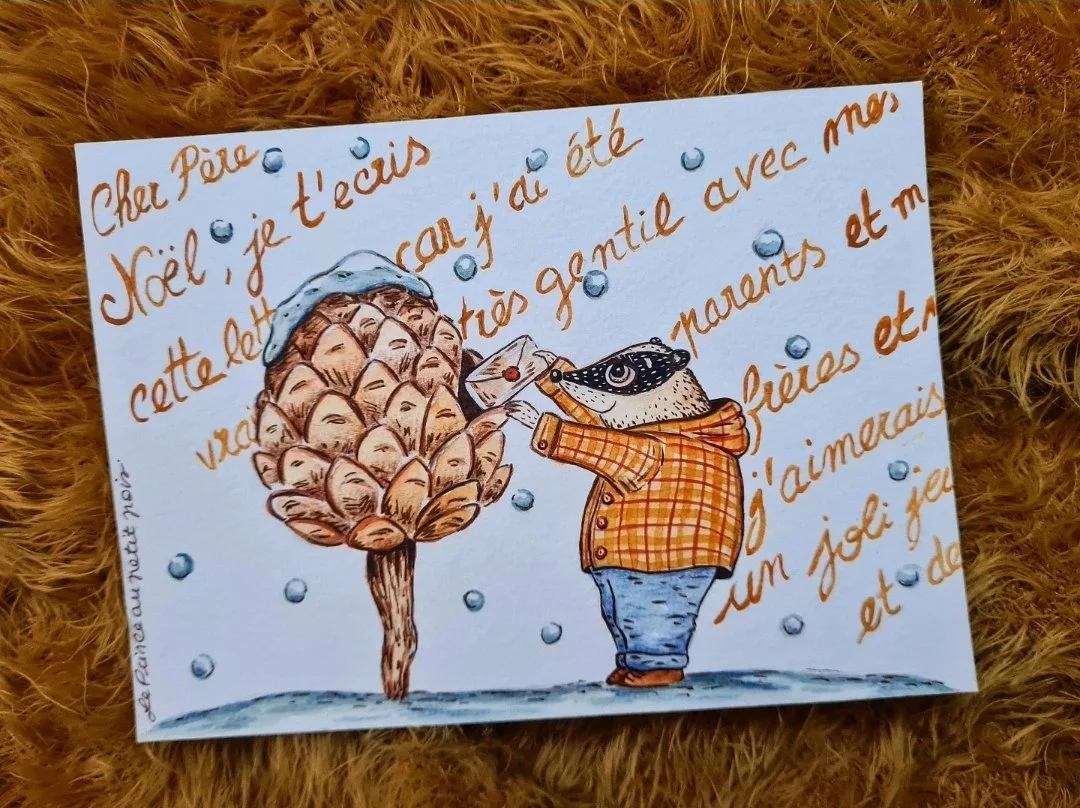 Cher Père
Noël, je t'ecris
cette lett car j'ai été
vrai très gentil avec mes
parents et m
frères et
j'aimerais
un joli jeu
et de
Le Prince au petit pois.